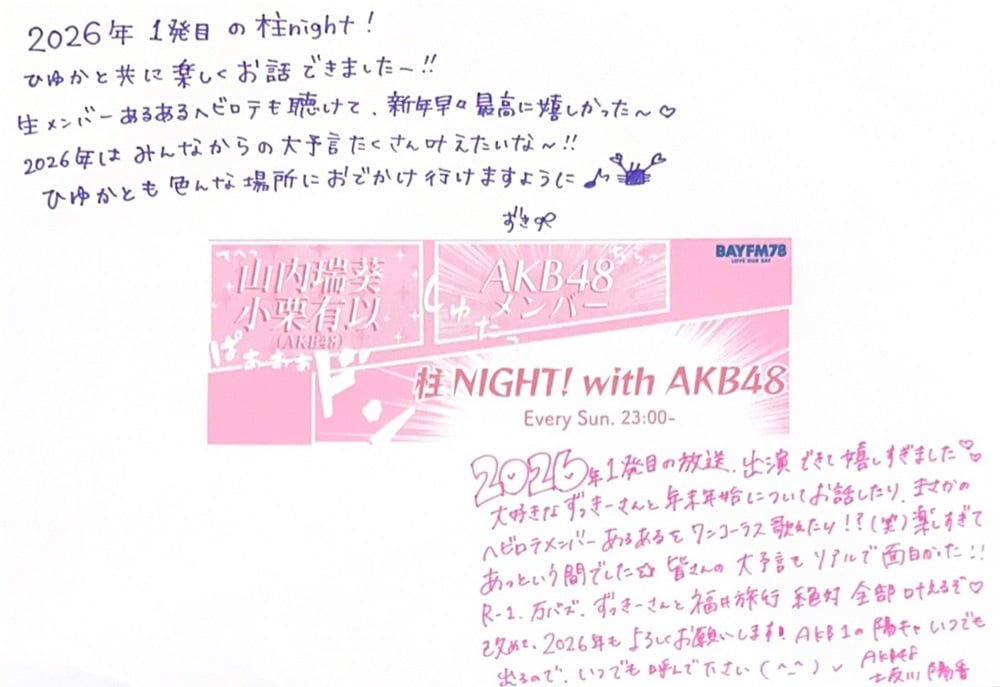 2026年 1発目の柱night!
ひゆかと共に楽しくお話できましたー!!
生メンバーあるあるヘビロテも聴けて、新年早々最高に嬉しかった〜♡
2026年はみんなからの大予言たくさん叶えたいな〜!!
ひゆかとも色んな場所におでかけ行けますように♪
ずき
てへっ
山内瑞葵
小栗有以
(AKB48)
ぱぁぁぁぁ
じゅたっ
ド
ちらっ
AKB48
メンバー
BAYFM78
LOVE OUR BAY
柱NIGHT! with AKB48
Every Sun. 23:00-
2026年1発目の放送、出演できて嬉しすぎました♡♡
大好きなずっきーさんと年末年始についてお話したり、まさかの
ヘビロテメンバーあるあるをワンコーラス歌えたり!?(笑)楽しすぎて
あっという間でした☆ 皆さんの大予言もリアルで面白かった!!
R-1、万バズ、ずっきーさんと福井旅行 絶対 全部叶えるぞ♡
改めて、2026年もよろしくお願いします! AKB1の陽キャいつでも
出るので、いつでも呼んでください(^-^)
AKB48
坂川陽香